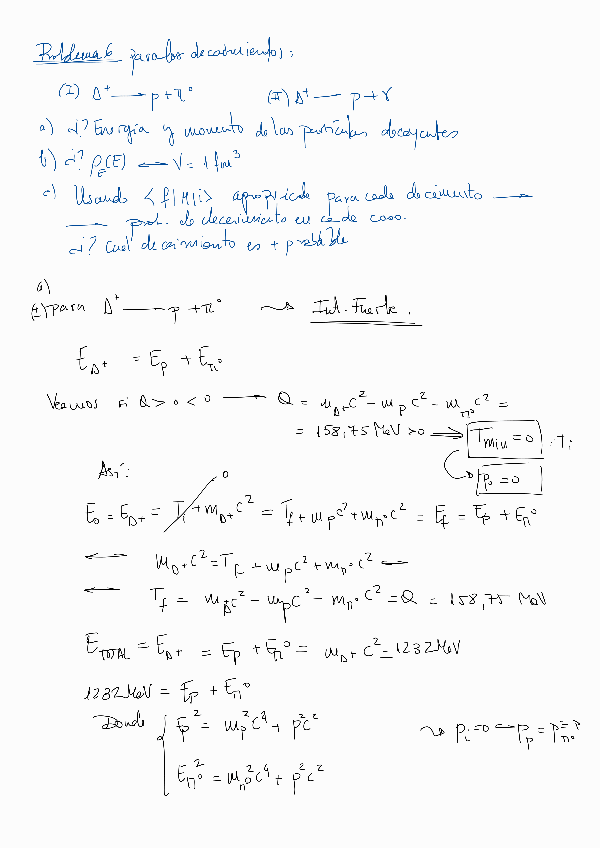 Problema 6 para los decaimientos:
(I) Δ⁺ → p + π⁰ (II) Δ⁺ — p + γ
a) ¿? Energía y momento de las partículas decayentes
b) ¿? ρ_E(E) ← V = 1 fm³
c) Usando <f|M|i> apropiado para cada decaimiento →
→ prob. de decaimiento en cada caso.
¿? Cuál decaimiento es + probable
a)
(I) para Δ⁺ → p + π⁰ ⇝ Int. Fuerte.
E_Δ⁺ = E_p + E_π⁰
Veamos si Q > 0 < 0 → Q = m_Δ⁺c² − m_pc² − m_π⁰c² =
= 158,75 MeV > 0 ⇒ T_min = 0 ; T_i
p_0 = 0
Así:
E_0 = E_Δ⁺ = T_i + m_Δ⁺c² = T_f + m_pc² + m_π⁰c² = E_f = E_p + E_π⁰
0
← m_Δ⁺c² = T_f + m_pc² + m_π⁰c² ←
← T_f = m_Δc² − m_pc² − m_π⁰c² = Q = 158,75 MeV
E_TOTAL = E_Δ⁺ = E_p + E_π⁰ = m_Δ⁺c² = 1232 MeV
1232 MeV = E_p + E_π⁰
Donde { E_p² = m_p²c⁴ + p²c² ⇝ p_i = 0 ← p_p = p_π⁰ = p
E_π⁰² = m_π⁰²c⁴ + p²c²